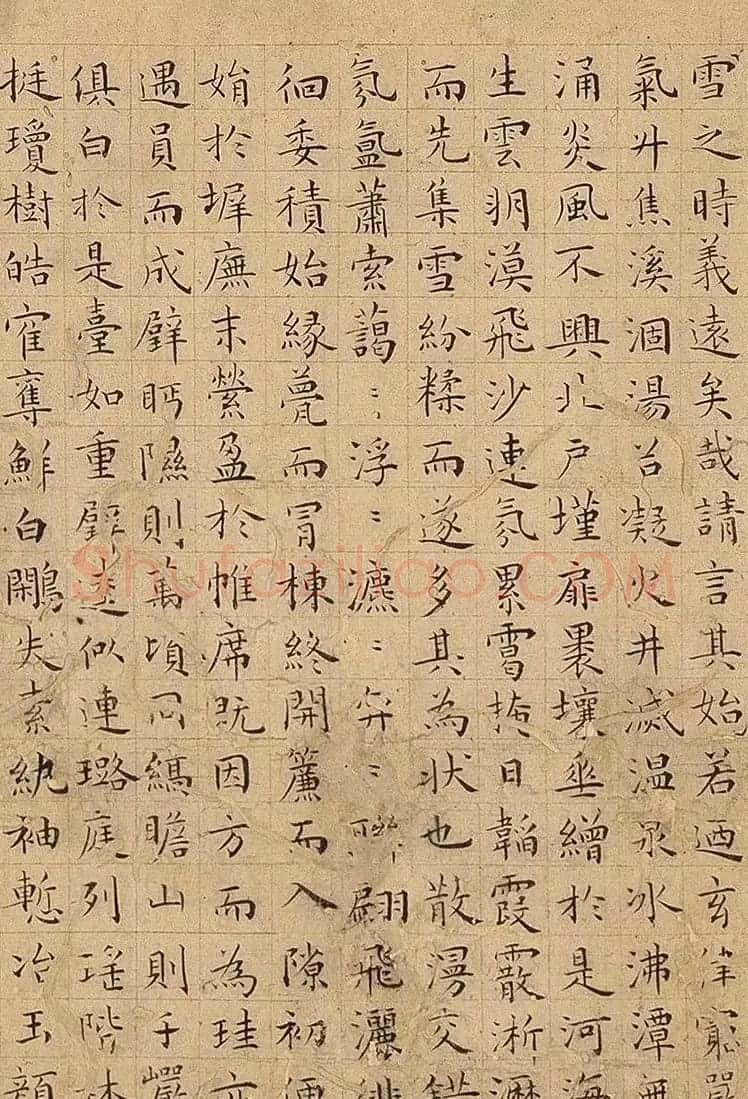 雪之時義遠矣哉請言其始若迺玄律窮嚴
氣升焦溪涸湯谷凝火井滅温泉冰沸潭無
涌炎風不興北户墐扉裹壤垂繒於是河海
生雲朔漠飛沙連氛累霭掩日韜霞霰淅瀝
而先集雪紛糅而遂多其為狀也散漫交錯
氛氳蕭索藹〻浮〻瀌〻弈〻聯翩飛灑徘
徊委積始緣甍而冒棟終開簾而入隙初便
娟於墀廡末縈盈於帷席既因方而為珪亦
遇員而成璧眄隰則萬頃同縞瞻山則千巖
俱白於是臺如重璧逵似連璐庭列瑤階林
挺瓊樹皓隺奪鮮白鷴失素紈袖慙冶玉顏
Shufaziliao.COM